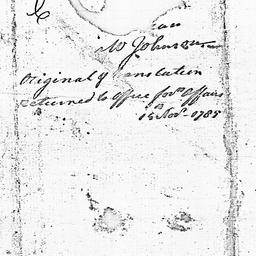 Wm Johnson
Original of translation
returned to Office for. Affairs
15 Novr. 1785